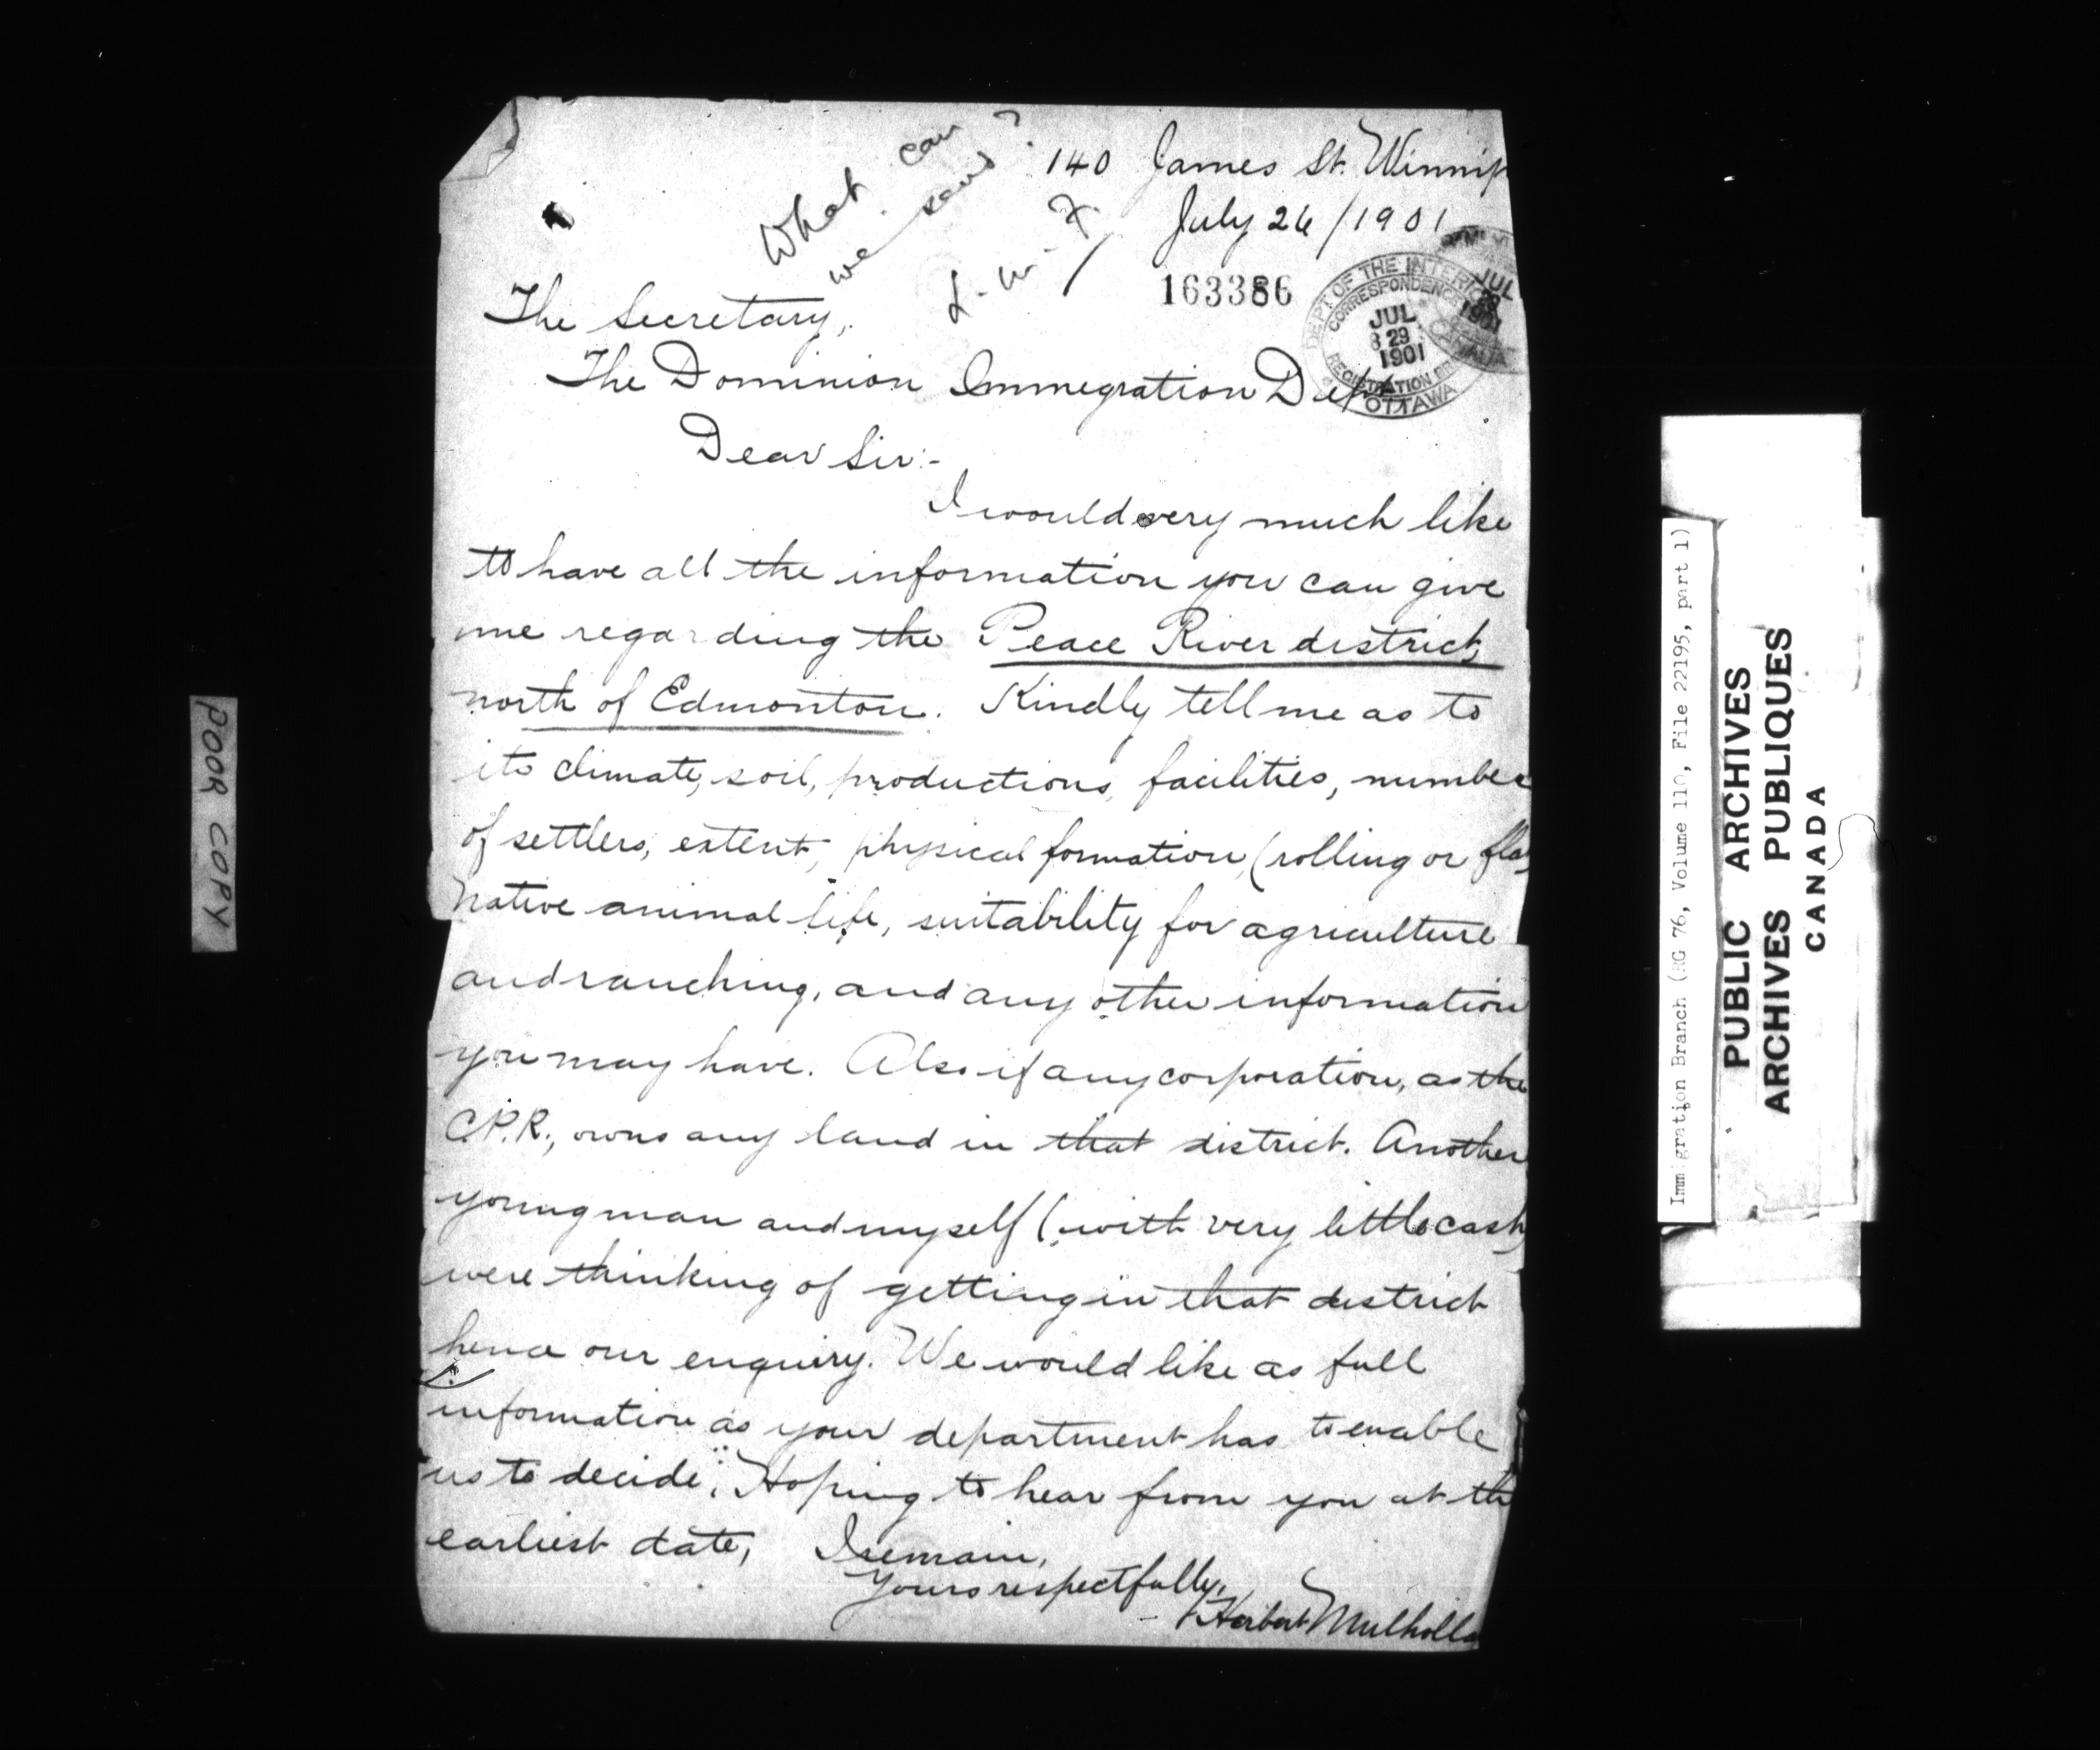 What can
we send?
L. M. F.
140 James St. Winnip
July 26/1901
163386
DEPT OF THE INTERIOR
CORRESPONDENCE
JUL
29
1901
REGISTRATION
OTTAWA
JUL
1901
CANADA
The Secretary,
The Dominion Immegration Dept
Dear Sir:-
I would very much like
to have all the information you can give
me regarding the Peace River district,
north of Edmonton. Kindly tell me as to
its climate, soil, productions, facilities, number
of settlers, extent, physical formation, (rolling or flat
native animal life, suitability for agriculture
and ranching, and any other information
you may have. Also if any corporation, as the
C.P.R., owns any land in that district. Another
young man and myself (with very little cash)
were thinking of getting in that district
hence our enquiry. We would like as full
information as your department has to enable
us to decide. Hoping to hear from you at the
earliest date, I remain,
Yours respectfully,
Herbert Mulholla
POOR COPY
Immigration Branch (RG 76, Volume 110, File 22195, part 1)
PUBLIC ARCHIVES
ARCHIVES PUBLIQUES
CANADA